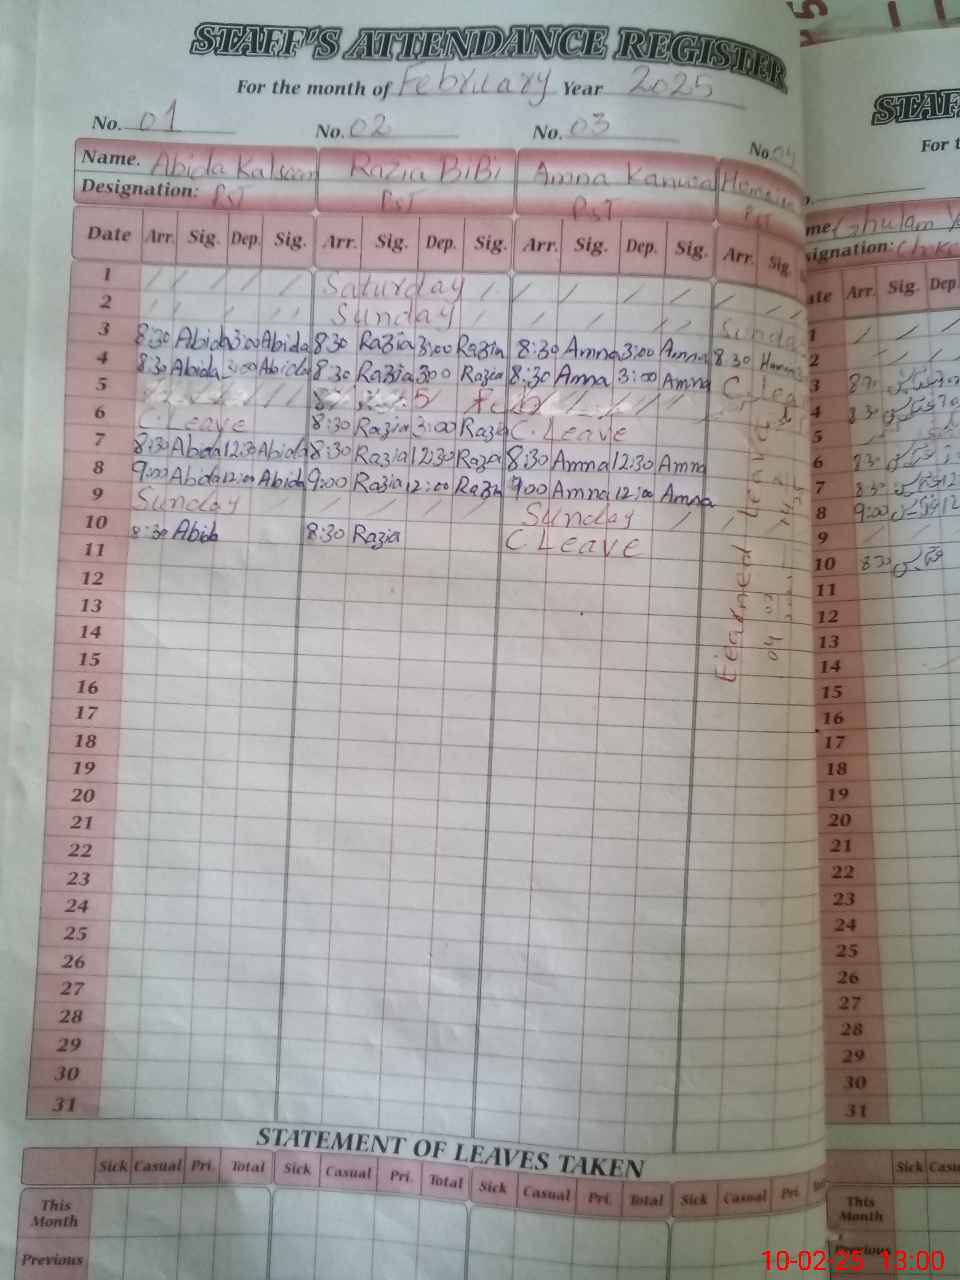 STAFF'S ATTENDANCE REGISTER
For the month of February Year 2025
No. 01 No. 02 No. 03 No. 04
Name. Abida Kalsoom Razia BiBi Amna Kanwal Humaira
Designation: PST PST PST PST
Date Arr. Sig. Dep. Sig. Arr. Sig. Dep. Sig. Arr. Sig. Dep. Sig. Arr. Sig.
1 Saturday
2 Sunday Sunday
3 8:30 Abida 3:00 Abida 8:30 Razia 3:00 Razia 8:30 Amna 3:00 Amna 8:30
4 8:30 Abida 3:00 Abida 8:30 Razia 3:00 Razia 8:30 Amna 3:00 Amna C.Leave
5 5 Feb
6 C.Leave 8:30 Razia 3:00 Razia C.Leave
7 8:30 Abida 12:30 Abida 8:30 Razia 12:30 Razia 8:30 Amna 12:30 Amna
8 9:00 Abida 12:00 Abida 9:00 Razia 12:00 Razia 9:00 Amna 12:00 Amna
9 Sunday Sunday
10 8:30 Abida 8:30 Razia C Leave
11
12
13
14
15
16
17
18
19
20
21
22
23
24
25
26
27
28
29
30
31
Earned Leave
STATEMENT OF LEAVES TAKEN
Sick Casual Pri. Total Sick Casual Pri. Total Sick Casual Pri. Total Sick Casual Pri.
This Month
Previous
STAF
For t
me Ghulam
signation:
ate Arr. Sig. Dep.
1
2
3 8:30
4 8:30
5
6 8:30
7 8:30
8 9:00
9
10 8:30
11
12
13
14
15
16
17
18
19
20
21
22
23
24
25
26
27
28
29
30
31
Sick Casu
This Month
Previous
10-02-25 13:00